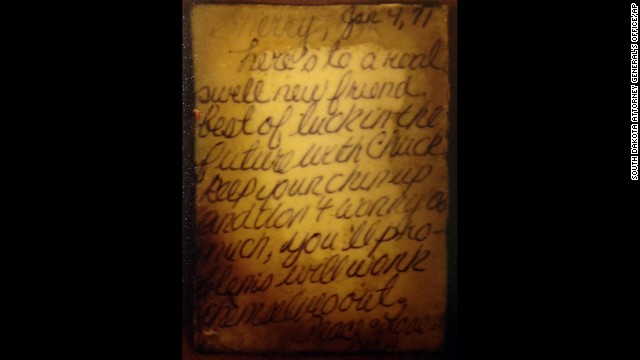 Sherry, Jan 9, 71
here's to a real
swell new friend
best of luck in the
future with Chuck
keep your chin up
and don't worry so
much, you'll pro-
blems will work
themselves out.
Peace & Love
SOUTH DAKOTA ATTORNEY GENERAL'S OFFICE/AP